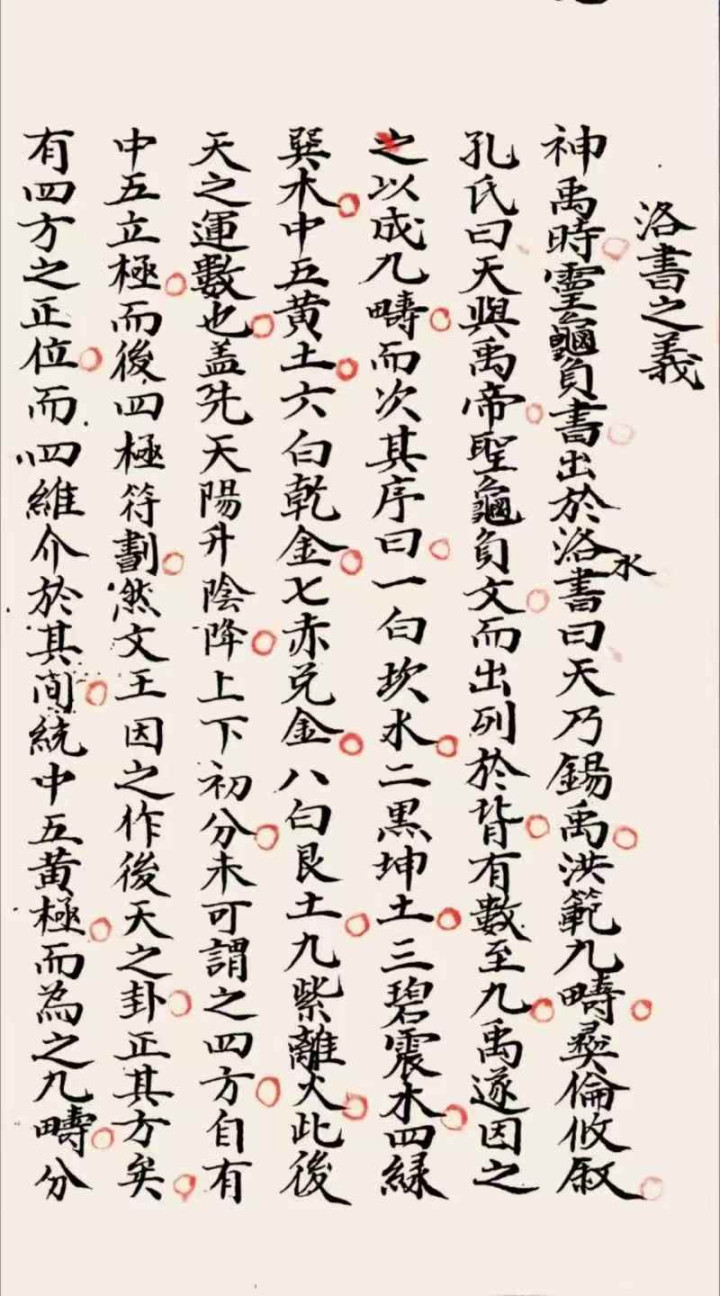 洛書之義
神禹時靈龜負書出於洛水書曰天乃錫禹洪範九疇彝倫攸叙
孔氏曰天與禹帝聖龜負文而出列於背有數至九禹遂因之
之以成九疇而次其序曰一白坎水二黑坤土三碧震木四緑
巽木中五黃土六白乾金七赤兌金八白艮土九紫離火此後
天之運數也盖先天陽升陰降上下初分未可謂之四方自有
中五立極而後四極符劃然文王因之作後天之卦正其方矣
有四方之正位而四維介於其间統中五黃極而為之九疇分